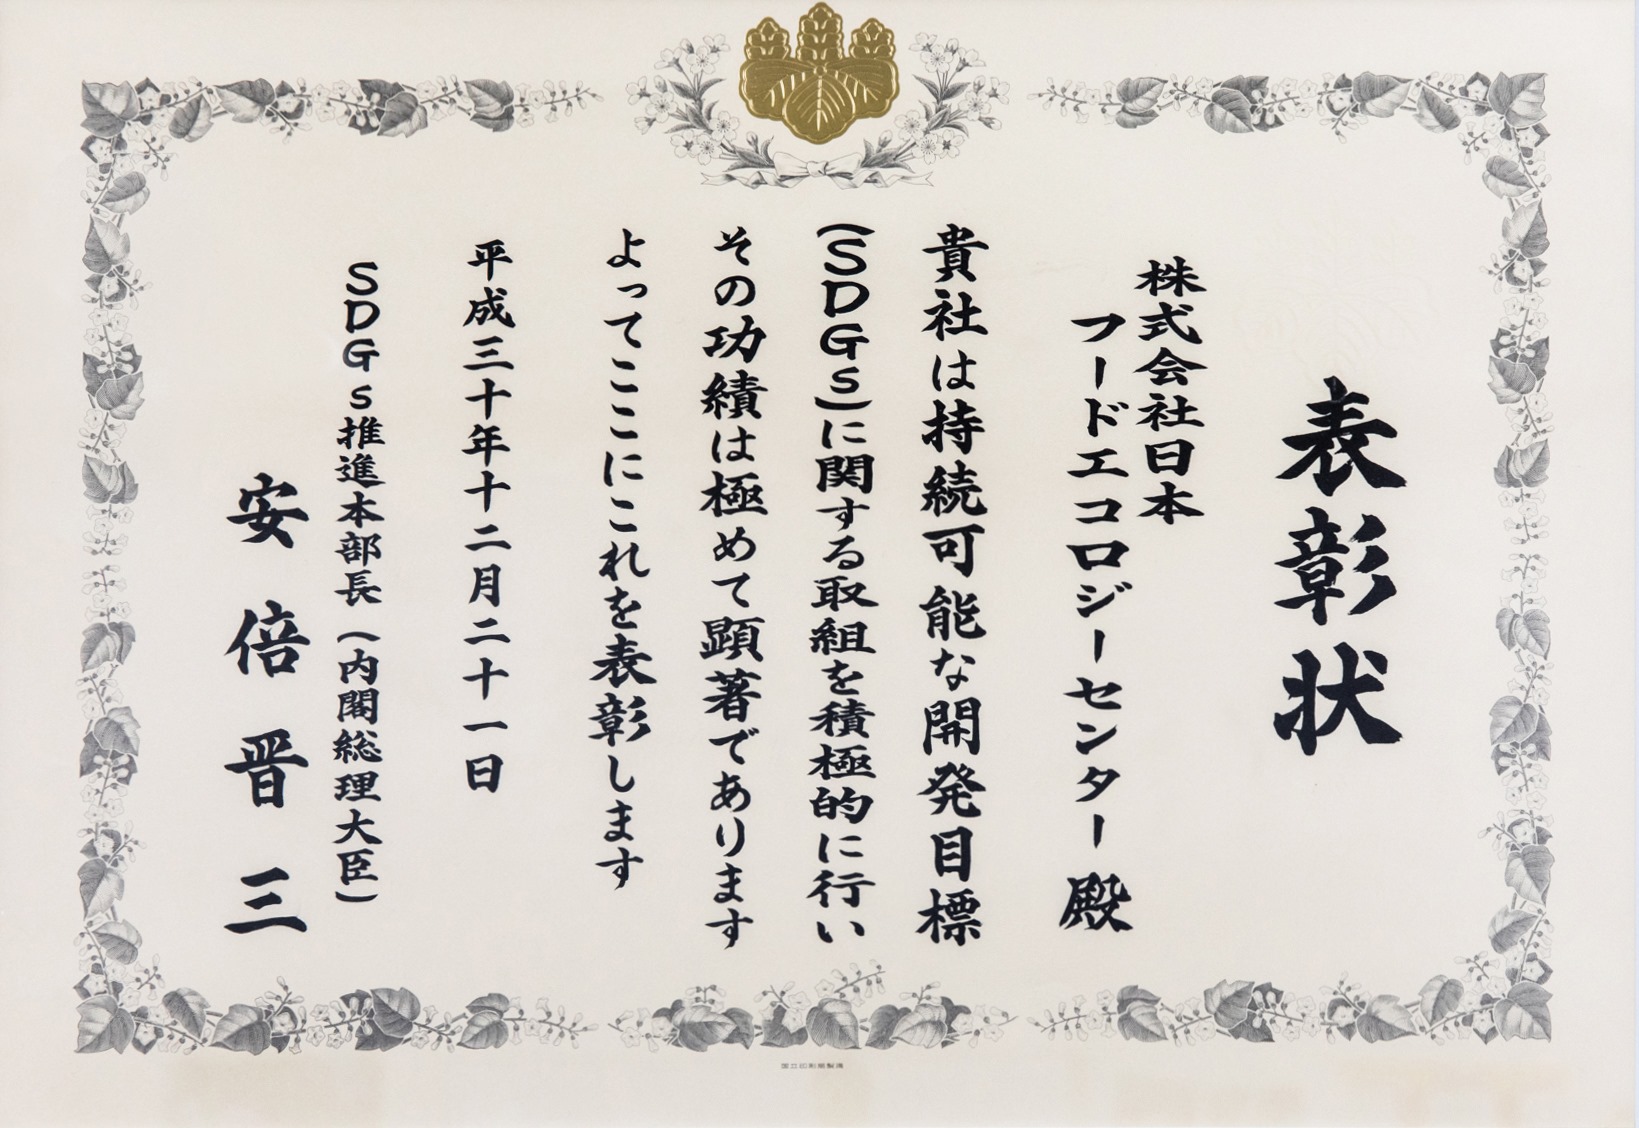 表彰状
株式会社日本
フードエコロジーセンター 殿
貴社は持続可能な開発目標
(SDGs)に関する取組を積極的に行い
その功績は極めて顕著であります
よってここにこれを表彰します
平成三十年十二月二十一日
SDGs推進本部長(内閣総理大臣)
安倍晋三
国立印刷局製造